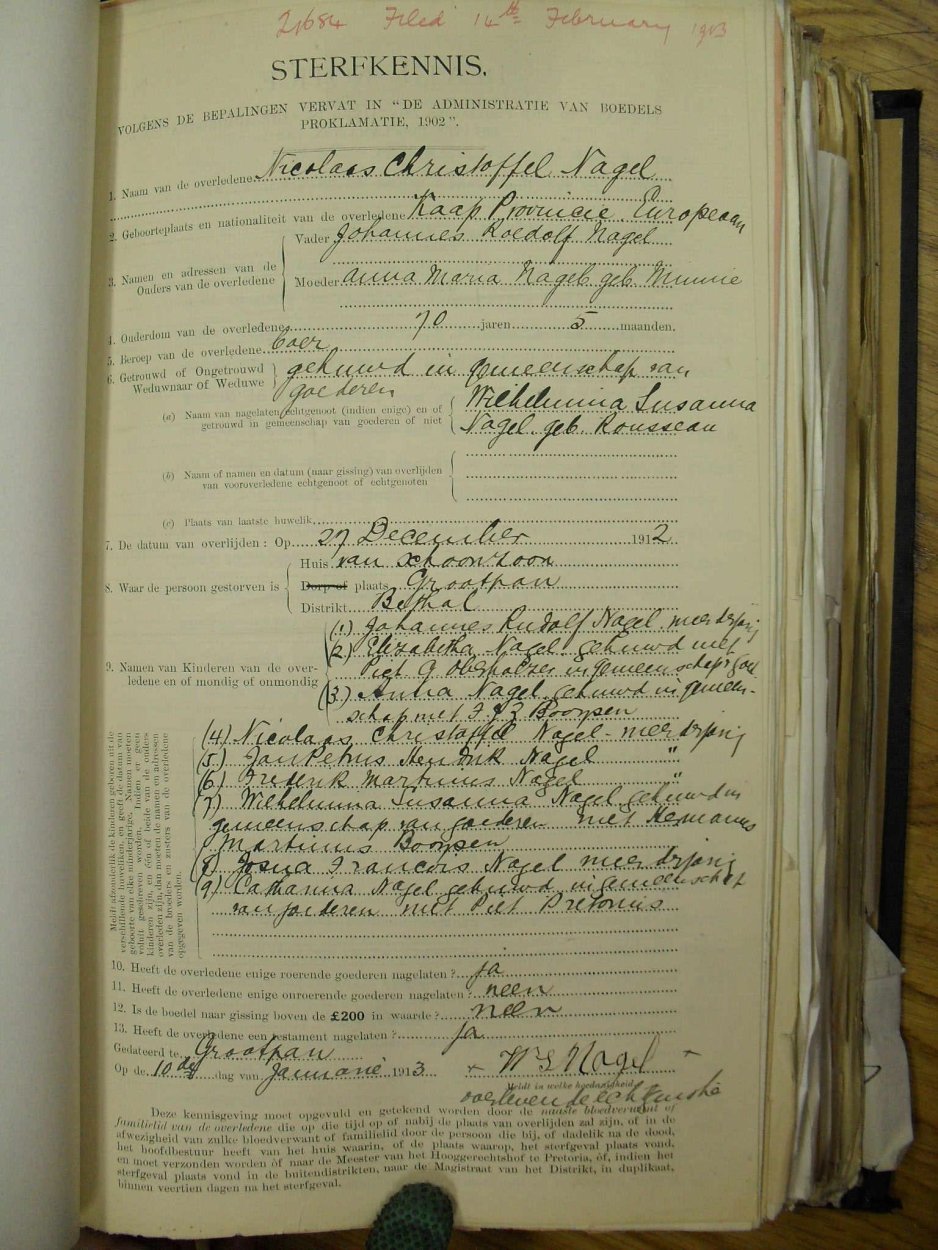 21684 Filed 14th February 1913
STERFKENNIS.
VOLGENS DE BEPALINGEN VERVAT IN “DE ADMINISTRATIE VAN BOEDELS
PROKLAMATIE, 1902”.
1. Naam van de overledene Nicolaas Christoffel Nagel
2. Geboorteplaats en nationaliteit van de overledene Kaap Provincie. Europeaan
3. Namen en adressen van de Ouders van de overledene
Vader Johannes Roedolf Nagel
Moeder Anna Maria Nagel geb. Minnie
4. Ouderdom van de overledene 70 jaren 5 maanden.
5. Beroep van de overledene Boer
6. Getrouwd of Ongetrouwd
Weduwnaar of Weduwe
gehuwd in gemeenschap van
goederen
(a) Naam van nagelaten echtgenoot (indien enige) en of
getrouwd in gemeenschap van goederen of niet
Wilhelmina Susanna
Nagel geb. Rousseau
(b) Naam of namen en datum (naar gissing) van overlijden
van vooroverledene echtgenoot of echtgenoten
(c) Plaats van laatste huwelik
7. De datum van overlijden: Op 27 December 1912
8. Waar de persoon gestorven is
Huis van schoonzoon
Dorp of plaats Grootpan
Distrikt Bethal
9. Namen van Kinderen van de over-
ledene en of mondig of onmondig
(1) Johannes Rudolf Nagel meerderjarig
(2) Elizabetha Nagel gehuwd met
Piet G Oberholzer in gemeenschap v goed
(3) Anna Nagel gehuwd in gemeen-
schap met Booysen
(4) Nicolaas Christoffel Nagel - meerderjarig
(5) Jan Petrus Hendrik Nagel "
(6) Frederik Martinus Nagel "
(7) Wilhelmina Susanna Nagel gehuwd in
gemeenschap van goederen met Hermanus
Martinus Booysen
(8) Josua Francois Nagel meerderjarig
(9) Catharina Nagel gehuwd in gemeenschap
van goederen met Piet Pretorius
Meldt afzonderlik de kinderen geboren uit de
verschillende huweliken, en geeft de datum van
geboorte van elke minderjarige. Namen moeten
voluit geschreven worden. Indien er geen
kinderen zijn, en één of beide van de ouders
overleden zijn, dan moeten de namen en adressen
van de broeders en zusters van de overledene
opgegeven worden.
10. Heeft de overledene enige roerende goederen nagelaten? ja
11. Heeft de overledene enige onroerende goederen nagelaten? neen
12. Is de boedel naar gissing boven de £200 in waarde? neen
13. Heeft de overledene een testament nagelaten? ja
Gedateerd te Grootpan
Op de 10de dag van Januarie 1913 W S Nagel
Meldt in welke hoedanigheid
overlevende echtgenote
Deze kennisgeving moet opgevuld en getekend worden door de naaste bloedverwant of
familielid van de overledene die op die tijd op of nabij de plaats van overlijden zal zijn, of in de
afwezigheid van zulke bloedverwant of familielid door de persoon die bij, of dadelik na de dood,
het hoofdbestuur heeft van het huis waarin, of de plaats waarop, het sterfgeval plaats vond,
en moet verzonden worden óf naar de Meester van het Hooggerechtshof te Pretoria, óf, indien het
sterfgeval plaats vond in de buitendistrikten, naar de Magistraat van het Distrikt, in duplikaat,
binnen veertien dagen na het sterfgeval.